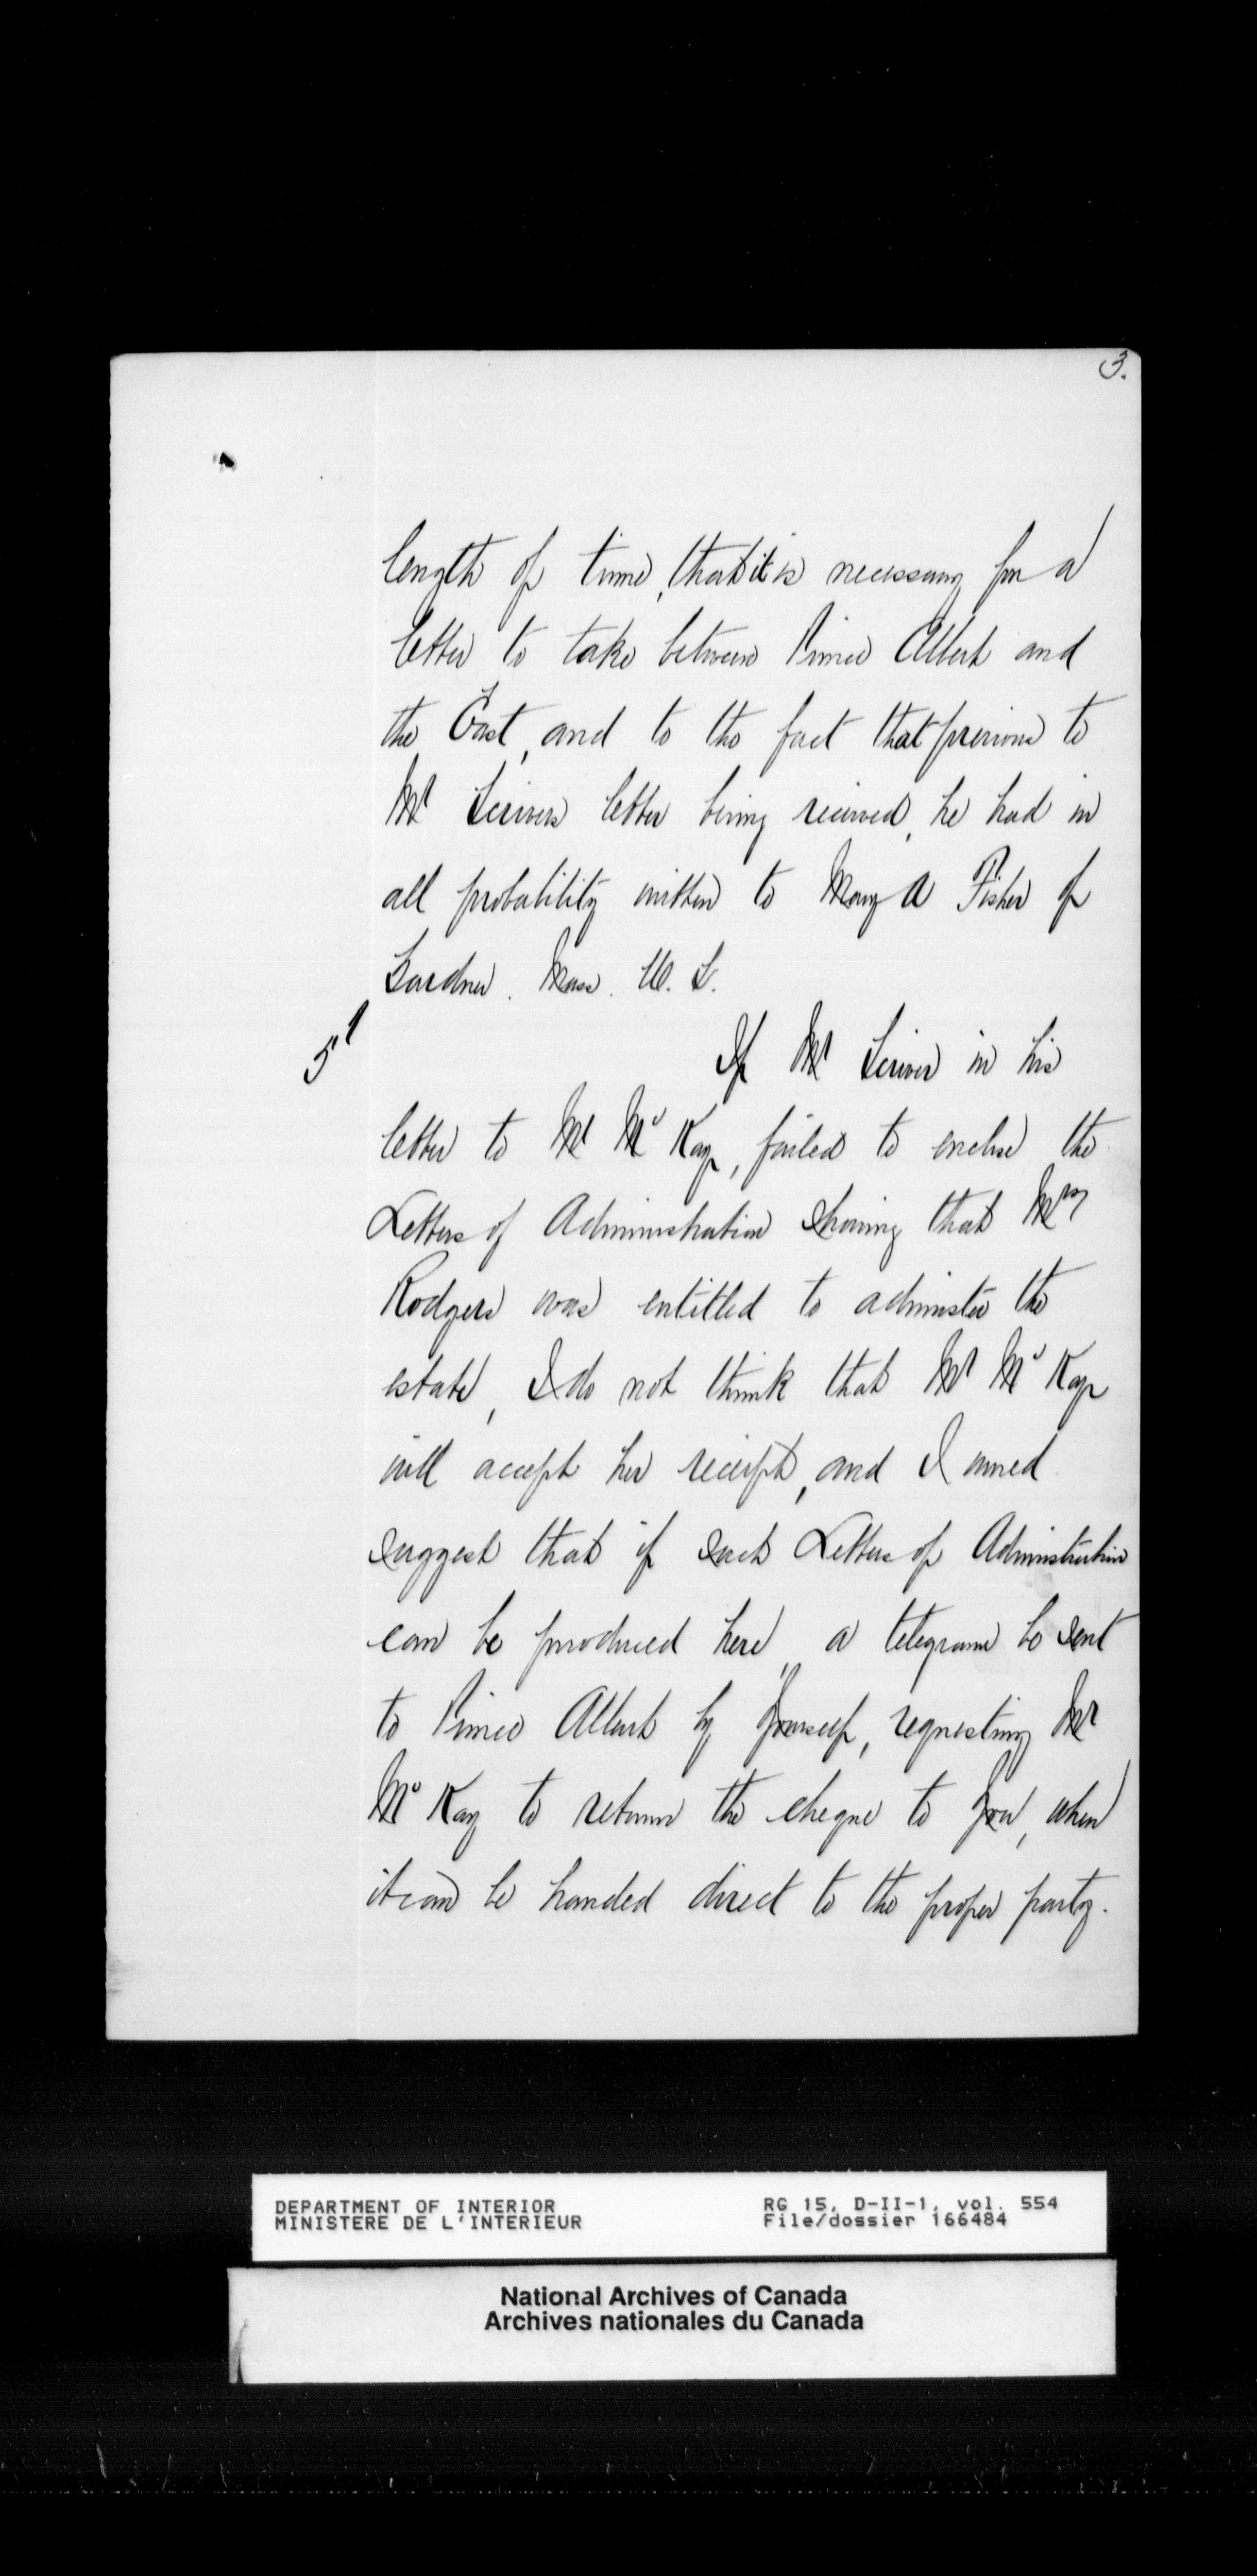 3.
length of time, that it is necessary for a
letter to take between Prince Albert and
the East, and to the fact that previous to
Mr Scrivers letter being received, he had in
all probability written to Mary A Fisher of
Gardner. Mass. U. S.
5
If Mr Scriver in his
letter to Mr Mc Kay, failed to enclose the
Letters of Administration showing that Mrs
Rodgers was entitled to administer the
estate, I do not think that Mr Mc Kay
will accept her receipt, and I would
suggest that if such Letters of Administration
can be produced here, a telegram be sent
to Prince Albert by yourself, requesting Mr
Mc Kay to return the cheque to you, when
it can be handed direct to the proper party.
DEPARTMENT OF INTERIOR
MINISTERE DE L'INTERIEUR
RG 15, D-II-1, vol. 554
File/dossier 166484
National Archives of Canada
Archives nationales du Canada